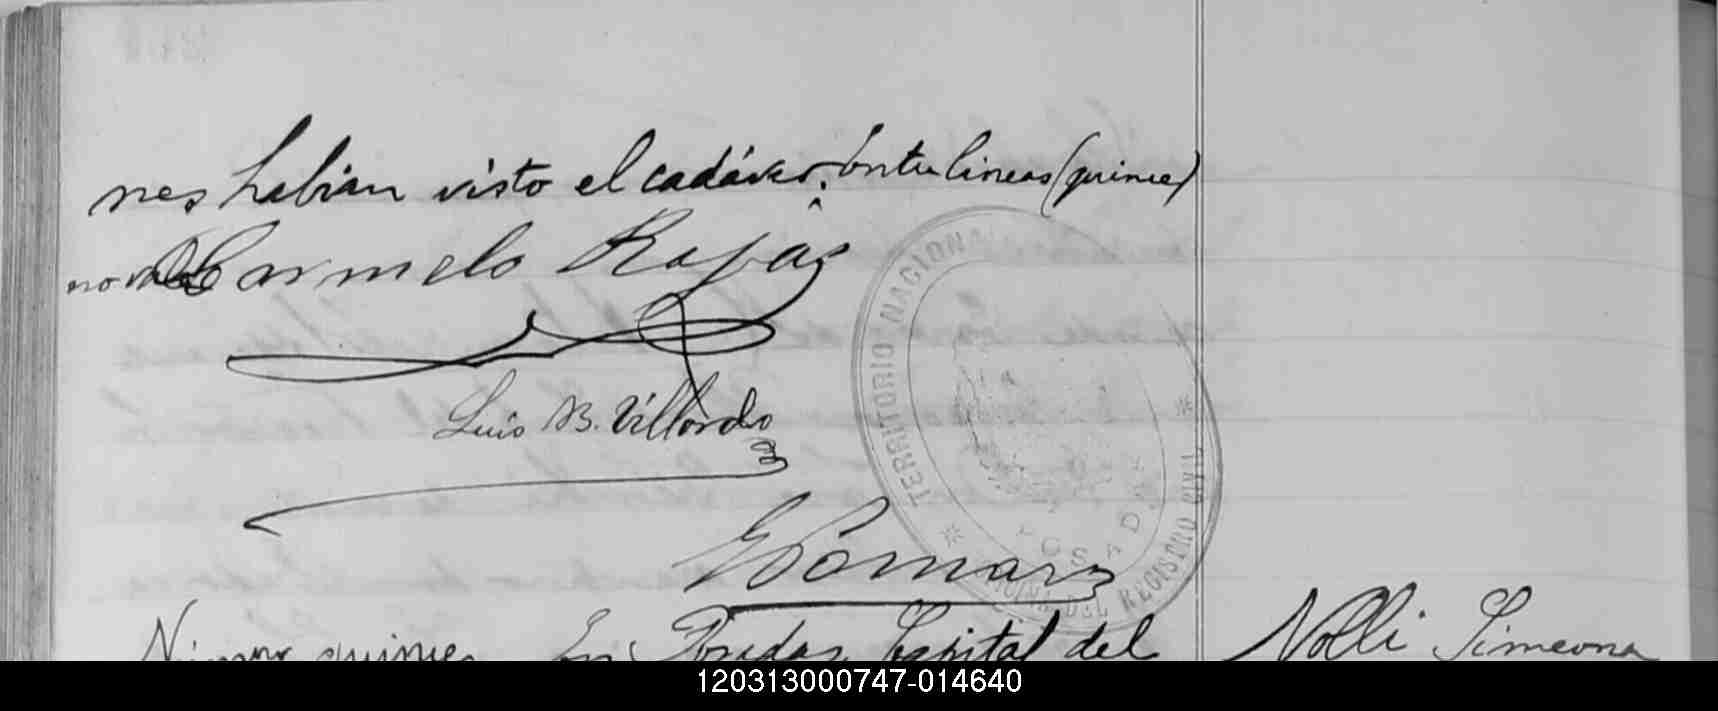 nes habian visto el cadáver. Entre lineas (quince)
no vale Carmelo Rojas
Luis B. Villordo
TERRITORIO NACIONAL
POSADAS
OFICINA DEL REGISTRO CIVIL
Número quince En Posadas Capital del
Nolli Simeona
120313000747-014640